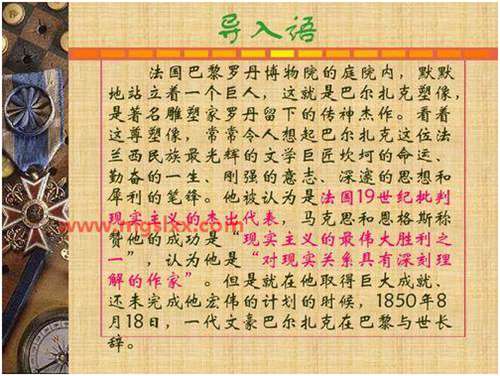 导入语
法国巴黎罗丹博物院的庭院内，默默
地站立着一个巨人，这就是巴尔扎克塑像，
是著名雕塑家罗丹留下的传神杰作。看着
这尊塑像，常常令人想起巴尔扎克这位法
兰西民族最光辉的文学巨匠坎坷的命运、
勤奋的一生、刚强的意志、深邃的思想和
犀利的笔锋。他被认为是法国19世纪批判
现实主义的杰出代表，马克思和恩格斯称
赞他的成功是“现实主义的最伟大胜利之
一”，认为他是“对现实关系具有深刻理
解的作家”。但是就在他取得巨大成就、
还未完成他宏伟的计划的时候，1850年8
月18日，一代文豪巴尔扎克在巴黎与世长
辞。